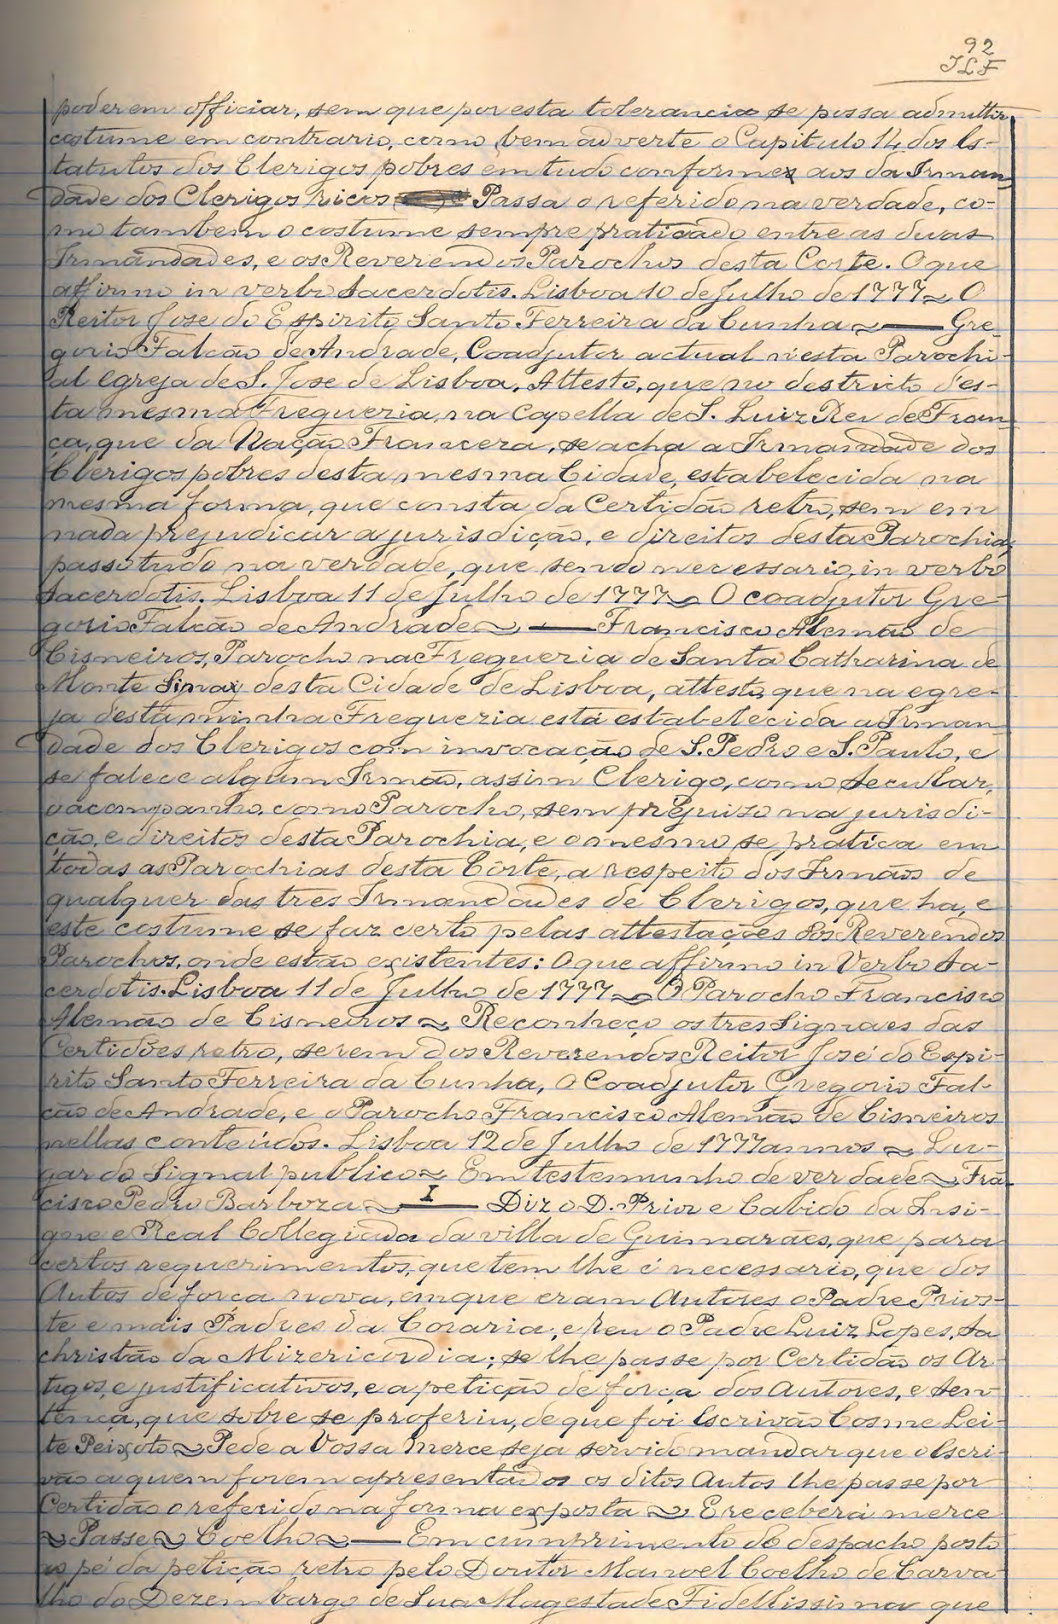 92
JLF
poderem officiar, sem que por esta tolerancia se possa admittir
costume em contrario, como bem adverte o Capitulo 14 dos Es-
tatutos dos Clerigos pobres em tudo conforme aos da Irman-
dade dos Clerigos ricos Passa o referido na verdade, co-
mo tambem o costume sempre praticado entre as duas
Irmandades, e os Reverendos Parochos desta Corte. O que
affirmo in verbo Sacerdotis. Lisboa 10 de Julho de 1777 ~ O
Reitor Jose do Espirito Santo Ferreira da Cunha ~ — Gre-
gorio Falcão de Andrade, Coadjutor actual n'esta Parochi-
al Egreja de S. Jose de Lisboa. Attesto, que no destricto d'es-
ta mesma Freguezia, na Capella de S. Luiz Rei de Fran-
ça, que da Nação Franceza, se acha a Irmandade dos
Clerigos pobres desta mesma Cidade, estabelecida na
mesma forma, que consta da Certidão retro, sem em
nada prejudicar a jurisdição, e direitos desta Parochia,
passo tudo na verdade, que sendo necessario, in verbo
Sacerdotis. Lisboa 11 de Julho de 1777 ~ O coadjutor Gre-
gorio Falcão de Andrade ~ — Francisco Alemão de
Cisneiros, Parocho na Freguezia de Santa Catharina de
Monte Sinay desta Cidade de Lisboa, attesto, que na egre-
ja desta minha Freguezia está estabelecida a Irman-
dade dos Clerigos com invocação de S. Pedro e S. Paulo, e
se falece algum Irmão, assim Clerigo, como Secular,
o acompanho, como Parocho, sem prejuizo na jurisdi-
ção, e direitos desta Parochia, e o mesmo se pratica em
todas as Parochias desta Côrte, a respeito dos Irmãos de
qualquer das tres Irmandades de Clerigos, que ha, e
este costume se faz certo pelas attestações dos Reverendos
Parochos, onde estão existentes: O que affirmo in Verbo Sa-
cerdotis. Lisboa 11 de Julho de 1777 ~ O Parocho Francisco
Alemão de Cisneiros ~ Reconheço os tres Signaes das
Certidões retro, serem dos Reverendos Reitor José do Espi-
rito Santo Ferreira da Cunha, O Coadjutor Gregorio Fal-
cão de Andrade, e o Parocho Francisco Alemão de Cisneiros
nellas conteúdos. Lisboa 12 de Julho de 1777 annos ~ Lu-
gar do Signal publico ~ Em testemunho de verdade ~ Frã-
cisco Pedro Barboza ~ — I — Diz o D. Prior e Cabido da Insi-
gne e Real Collegiada da villa de Guimaraes, que para
certos requerimentos, que tem lhe é necessario, que dos
Autos de força nova, em que eram Autores o Padre Prios-
te e mais Padres da Coraria, e reu o Padre Luiz Lopes, Sa-
christão da Mizericordia; se lhe passe por Certidão os Ar-
tigos, e justificativos, e a petição de força dos Autores, e sen-
tença, que sobre se proferiu, de que foi Escrivão Cosme Lei-
te Peixoto ~ Pede a Vossa merce seja servido mandar que o Escri-
vão a quem forem apresentados os ditos Autos lhe passe por
Certidão o referido na forma exposta ~ E receberá merce
~ Passe ~ Coelho ~ — Em cumprimento do despacho posto
ao pé da petição retro pelo Doutor Manoel Coelho de Carva-
lho do Dezembargo de Sua Magestade Fidellissima que